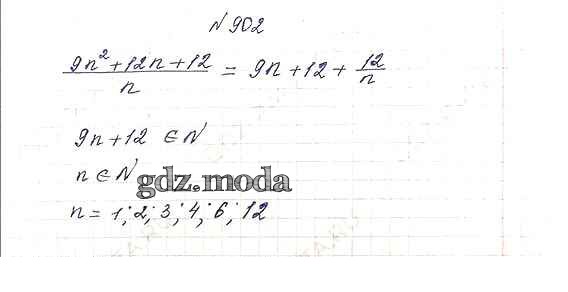 № 902
(9n² + 12n + 12)/n = 9n + 12 + 12/n
9n + 12 ∈ N
n ∈ N
gdz.moda
n = 1; 2; 3; 4; 6; 12